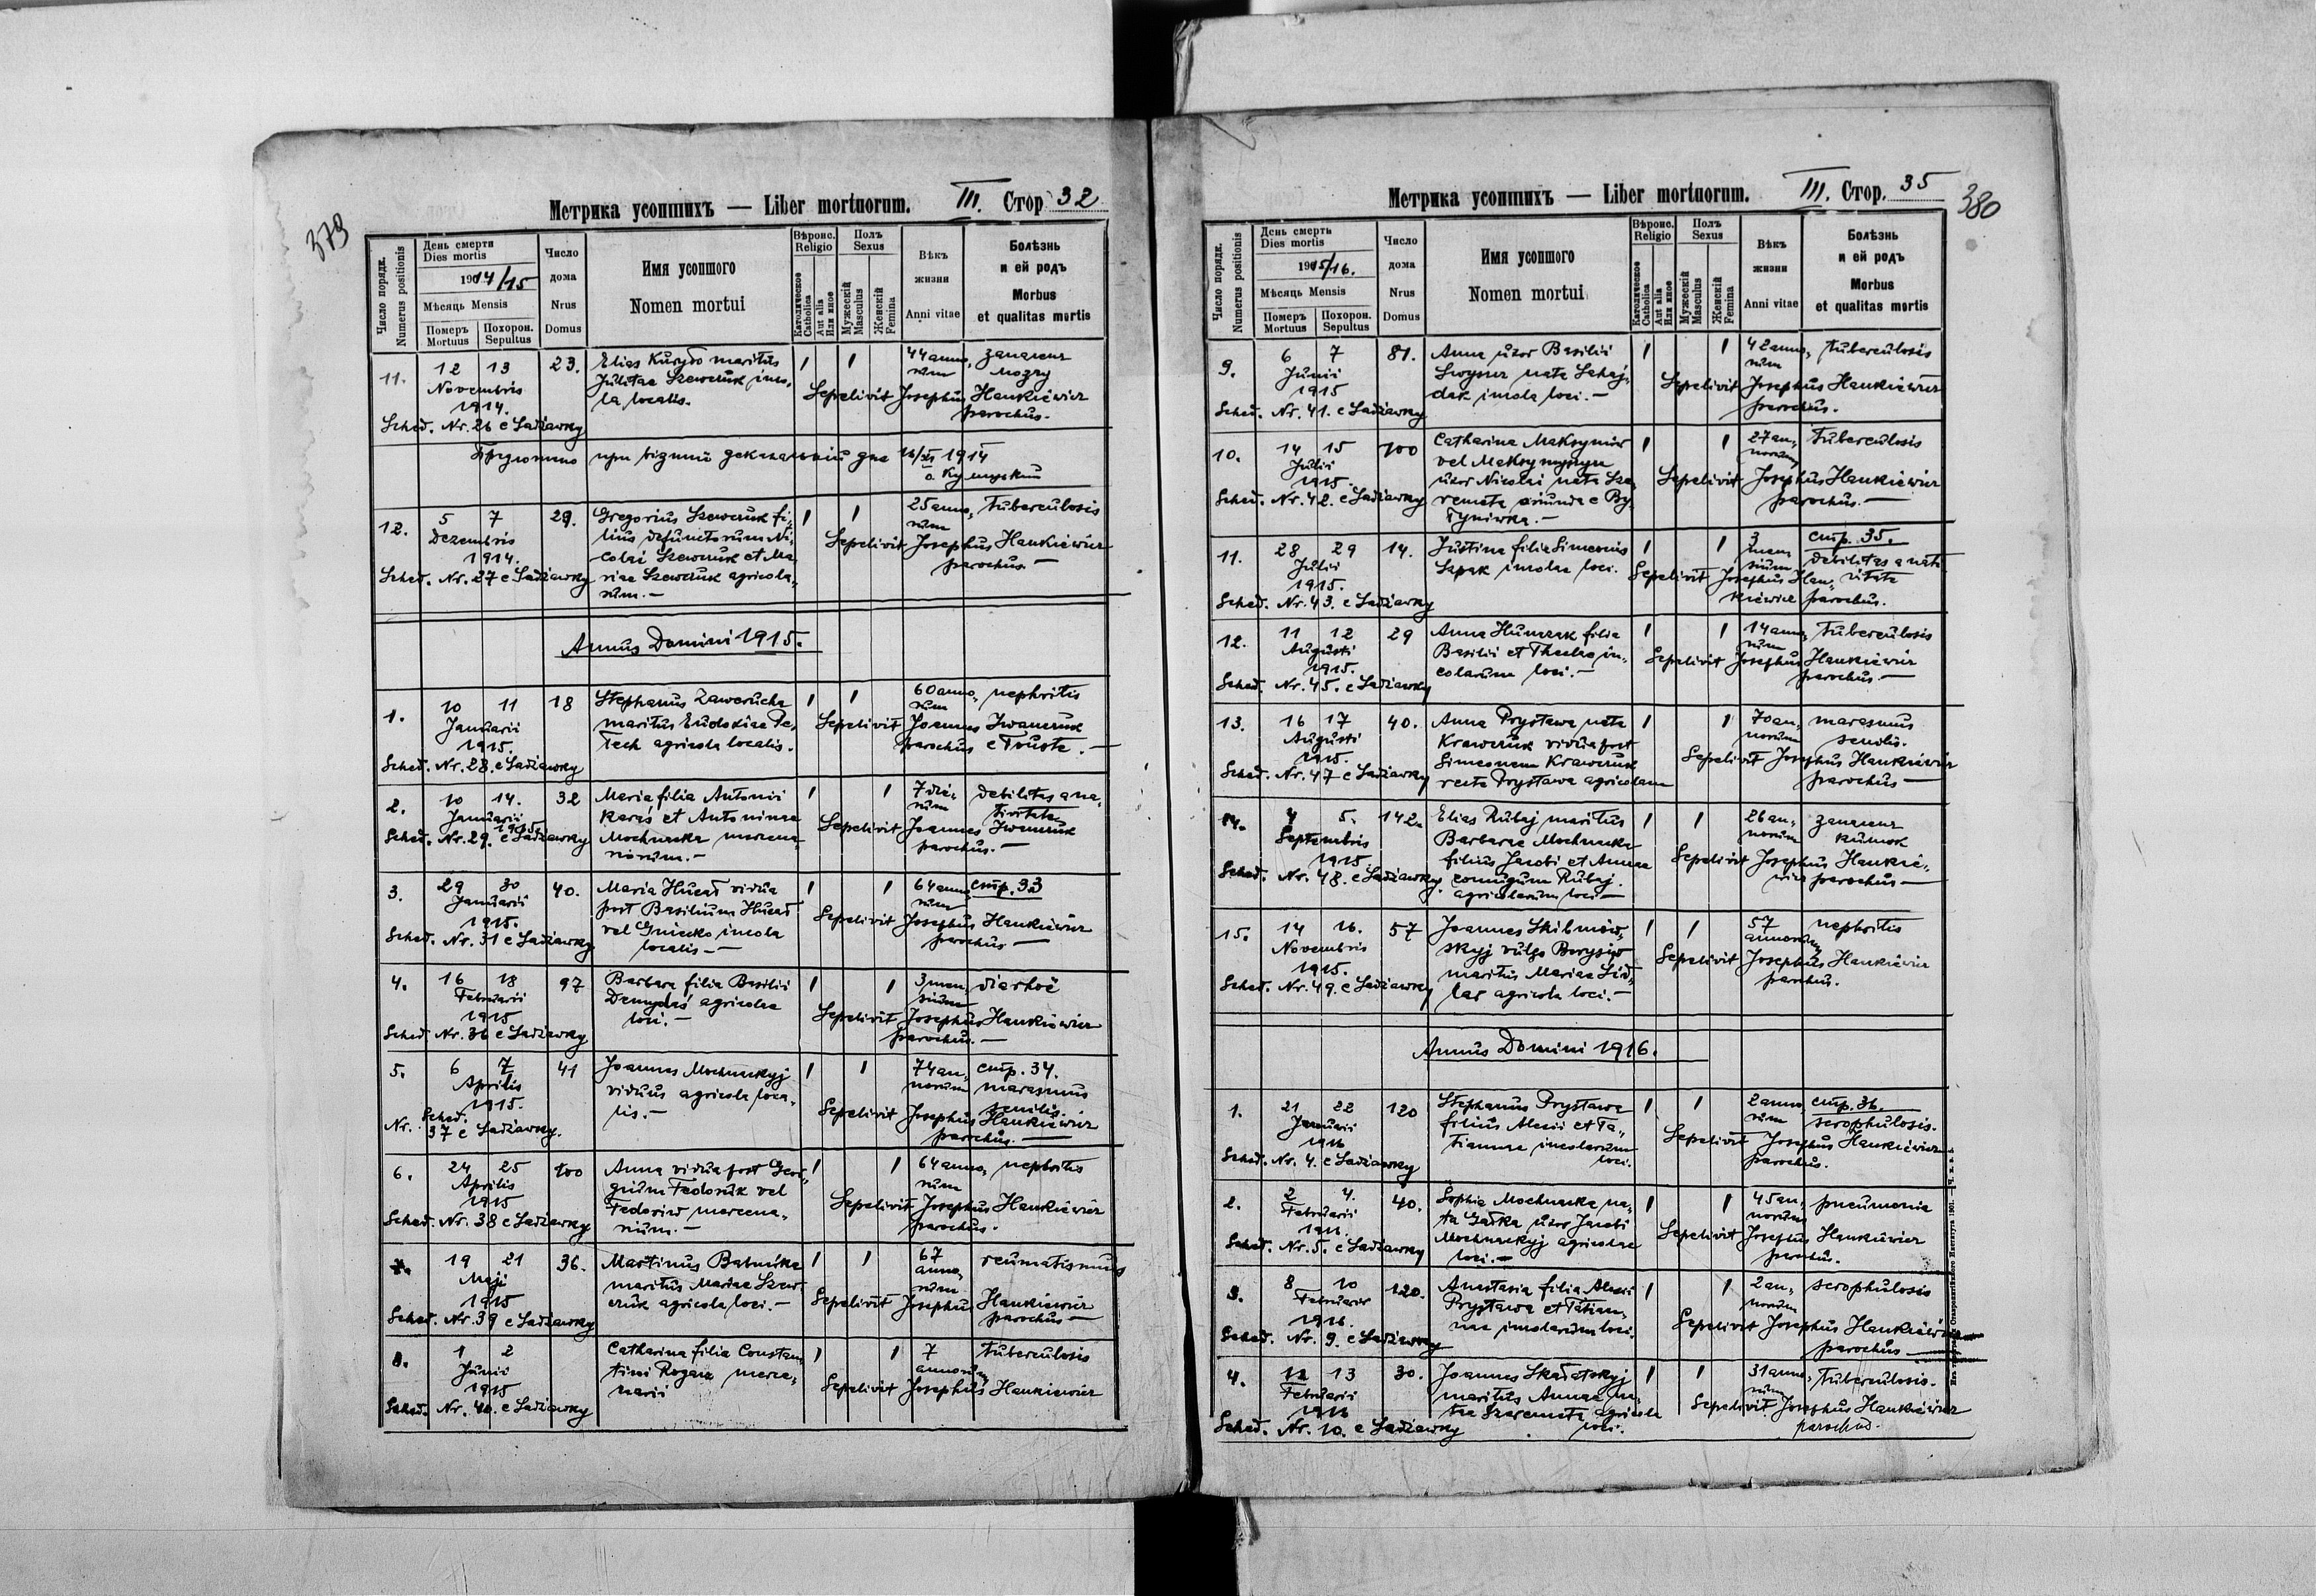 379
Метрика усопшихъ — Liber mortuorum. III. Стор 32
Число порядк. Numerus positionis
День смерти
Dies mortis
1914/15
Мѣсяць Mensis
Померъ Mortuus
Похорон. Sepultus
Число дома
Nrus Domus
Имя усопшого
Nomen mortui
Вѣроис. Religio
Католическое Catholica
Aut alia Или иное
Полъ Sexus
Мужескій Masculus
Женскій Femina
Вѣкъ жизни
Anni vitae
Болѣзнь
и ей родъ
Morbus
et qualitas mortis
11. 12 13 23. Elias Kurydo maritus 1 1 44 anno,
Novembris Julitae Szewczuk inco, rum
1914. la localis. Sepelivit Josephus Hankiewicz
parochus.
Sched. Nr. 26 e Sadzawky
при візиті деканальній дня 1914
12. 5 7 29. Gregorius Szewczuk fi, 1 1 25 anno, tuberculosis
Dezembris lius defunctorum Ni, rum
1914. colai Szewczuk et Ma, Sepelivit Josephus Hankiewicz
Sched. Nr. 27 e Sadzawky riae Szewczuk agricola, parochus. —
rum. —
Annus Domini 1915.
1. 10 11 18 Stephanus Zawerucha 1 1 60 anno, nephritis
Januarii maritus Eudokiae Pe, rum
1915. tech agricola localis. Sepelivit Joannes Iwanczuk
Sched. Nr. 28. e Sadzawky parochus e Touste. —
2. 10 14. 32 Maria filia Antonii 1 1 7 die, debilitas a na,
Januarii 1915. Karaś et Antoninae rum tivitate
Sched. Nr. 29. e Sadzawky Mochnacka mercena, Sepelivit Joannes Iwanczuk
riorum. — parochus. —
3. 29 30 40. Maria Hucał vidua 1 1 64 anno, стр. 33
Januarii post Basilium Hucał rum
1915. vel Gniecko incola Sepelivit Josephus Hankiewicz
Sched. Nr. 31 e Sadzawky localis — parochus —
4. 16 18 97 Barbara filia Basilii 1 1 3 men, diarhoë
Februarii Demydaś agricolae sium
1915 loci. — Sepelivit Josephus Hankiewicz
Sched. Nr. 36 e Sadzawky parochus. —
5. 6 7 41 Joannes Mochnackyj 1 1 74 an, стр. 34.
Aprilis viduus agricola loca, norum marasmus
1915. lis. — senilis.
Sched. Sepelivit Josephus Hankiewicz
Nr. 37 e Sadzawky. parochus. —
6. 24 25 100 Anna vidua post Geor, 1 1 64 anno, nephritis
Aprilis gium Fedoruk vel rum
1915 Fedoriw mercena, Sepelivit Josephus Hankiewicz
Sched. Nr. 38 e Sadzawky rium. — parochus.
7. 19 21 36. Martinus 1 1 67 reumatismus
Maji maritus Mariae Szew, anno,
1915 czuk agricola loci. — rum
Sched. Nr. 39 e Sadzawky Sepelivit Josephus Hankiewicz
parochus —
8. 1 2 Catharina filia Constan, 1 1 7 tuberculosis
Junii tini merce, annorum
1915 narii Sepelivit Josephus Hankiewicz
Sched. Nr. 40. e Sadzawky
380
Метрика усопшихъ — Liber mortuorum. III. Стор. 35
Число порядк. Numerus positionis
День смерти
Dies mortis
1915/16.
Мѣсяць Mensis
Померъ Mortuus
Похорон. Sepultus
Число дома
Nrus Domus
Имя усопшого
Nomen mortui
Вѣроис. Religio
Католическое Catholica
Aut alia Или иное
Полъ Sexus
Мужескій Masculus
Женскій Femina
Вѣкъ жизни
Anni vitae
Болѣзнь
и ей родъ
Morbus
et qualitas mortis
9. 6 7 81. Anna uxor Basilii 1 1 42 anno, tuberculosis
Junii nata Sahaj, rum
1915 dak incola loci. — Sepelivit Josephus Hankiewicz
Sched. Nr. 41. e Sadzawky parochus.
10. 14 15 100 Catharina Maksymiw 1 1 27 an, tuberculosis
Julii vel norum
1915. uxor Nicolai nata Sze, Sepelivit Josephus Hankiewicz
Sched. Nr. 42. e Sadzawky remeta oriunda e By, parochus. —
tyniwka. —
11. 28 29 14. Justina filia Simeonis 1 1 3 стр. 35.
Julii Sapak incolae loci. mensium debilitas a nati
1915. Sepelivit Josephus Han, vitate
Sched. Nr. 43. e Sadzawky kiewicz parochus.
12. 11 12 29 Anna Humczak filia 1 1 14 anno, tuberculosis
Augusti Basilii et Theclae in, rum
1915. colarum loci. — Sepelivit Josephus Hankiewicz
Sched. Nr. 45. e Sadzawky parochus. —
13. 16 17 40. Anna Prystawa nata 1 1 70 an, marasmus
Augusti Krawczuk vidua post norum senilis.
1915. Simeonem Krawczuk Sepelivit Josephus Hankiewicz
Sched. Nr. 47 e Sadzawky recte Prystawa agricolam parochus —
14. 4 5. 142. Elias Rubaj maritus 1 1 26 an,
Septembris Barbarae Mochnacka norum
1915. filius Jacobi et Annae Sepelivit Josephus Hankie,
Sched. Nr. 48. e Sadzawky. conjugum Rubaj. wicz parochus —
agricolarum loci —
15. 14 16. 57 Joannes Skibniow, 1 1 57 nephritis
Novembris skyj vulgo Borysiw annorum
1915. maritus Mariae Sepelivit Josephus Hankiewicz
Sched. Nr. 49. e Sadzawky agricola loci. — parochus.
Annus Domini 1916.
1. 21 22 120 Stephanus Prystawa 1 1 2 anno, стр. 36.
Januarii filius Alexii et Ta, rum scrophulosis.
1916 tiannae incolarum Sepelivit Josephus Hankiewicz
Sched. Nr. 4. e Sadzawky loci. parochus.
2. 2 4. 40. Sophia Mochnacka na, 1 1 45 an, pneumonia
Februarii ta Gałka uxor Jacobi norum
1916. Mochnackyj agricolae Sepelivit Josephus Hankiewicz
Sched. Nr. 5. e Sadzawky loci. — parochus.
3. 8 10 120. Anastasia filia Alexii 1 1 2 an, scrophulosis
Februarii Prystawa et Tatian, norum
1916. nae incolarum loci. Sepelivit Josephus Hankiewicz
Sched. Nr. 9. e Sadzawky parochus —
4. 12 13 30. Joannes Skałatskyj 1 1 31 anno, tuberculosis.
Februarii maritus Annae na, rum
1916 tae Szeremeta agricola Sepelivit Josephus Hankiewicz
Sched. Nr. 10. e Sadzawky loci. parochus.